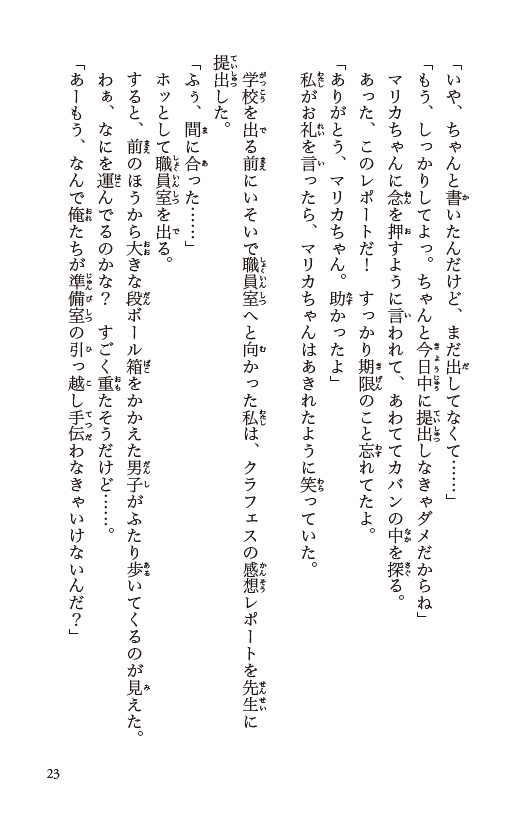 「いや、ちゃんと書いたんだけど、まだ出してなくて……」
「もう、しっかりしてよっ。ちゃんと今日中に提出しなきゃダメだからね」
マリカちゃんに念を押すように言われて、あわててカバンの中を探る。
あった、このレポートだ！　すっかり期限のこと忘れてたよ。
「ありがとう、マリカちゃん。助かったよ」
私がお礼を言ったら、マリカちゃんはあきれたように笑っていた。
学校を出る前にいそいで職員室へと向かった私は、クラフェスの感想レポートを先生に
提出した。
「ふぅ、間に合った……」
ホッとして職員室を出る。
すると、前のほうから大きな段ボール箱をかかえた男子がふたり歩いてくるのが見えた。
わぁ、なにを運んでるのかな？　すごく重たそうだけど……。
「あーもう、なんで俺たちが準備室の引っ越し手伝わなきゃいけないんだ？」
23